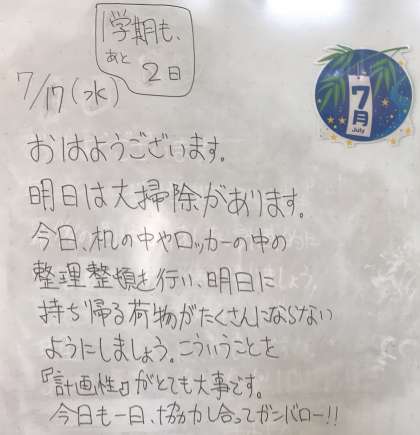 1学期も、
あと
2日
7/17(水)
7月
July
おはようございます。
明日は大掃除があります。
今日、机の中やロッカーの中の
整理整頓を行い、明日に
持ち帰る荷物がたくさんにならない
ようにしましょう。こういうことを
『計画性』がとても大事です。
今日も一日、協力し合ってガンバロー!!